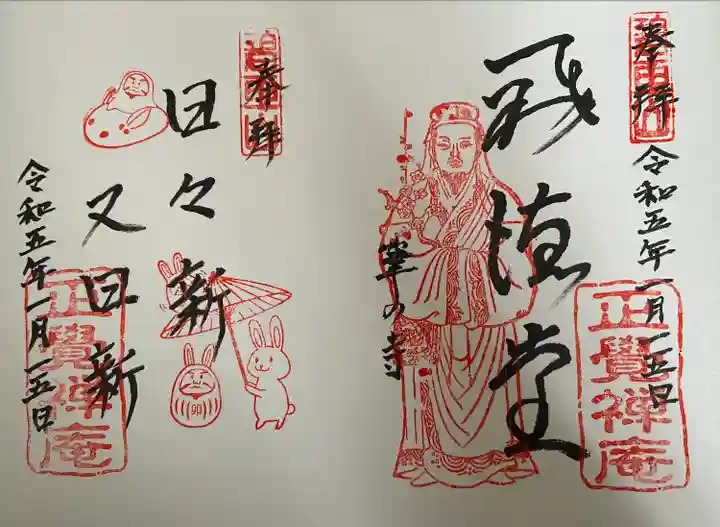 奉拝
令和五年一月一五日
正覺禅庵
堂
筆の寺
奉拝
日々新
又日新
令和五年一月一五日
正覺禅庵
卯